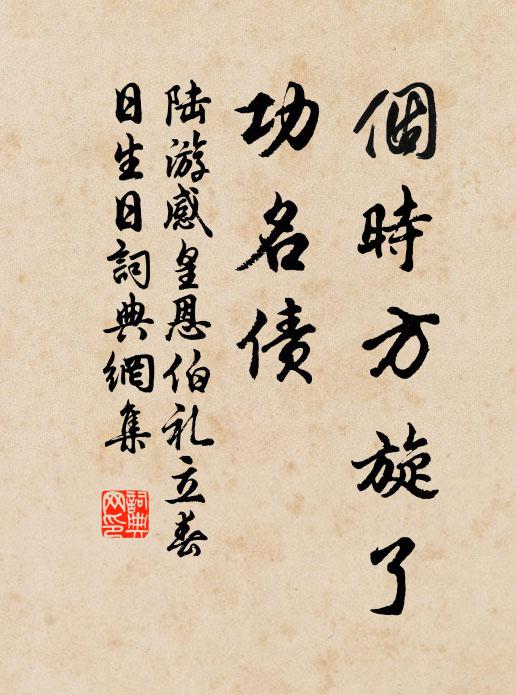 個時方旋了
功名债
陆游感皇恩伯礼立春
日生日詞典網集
詞典网印